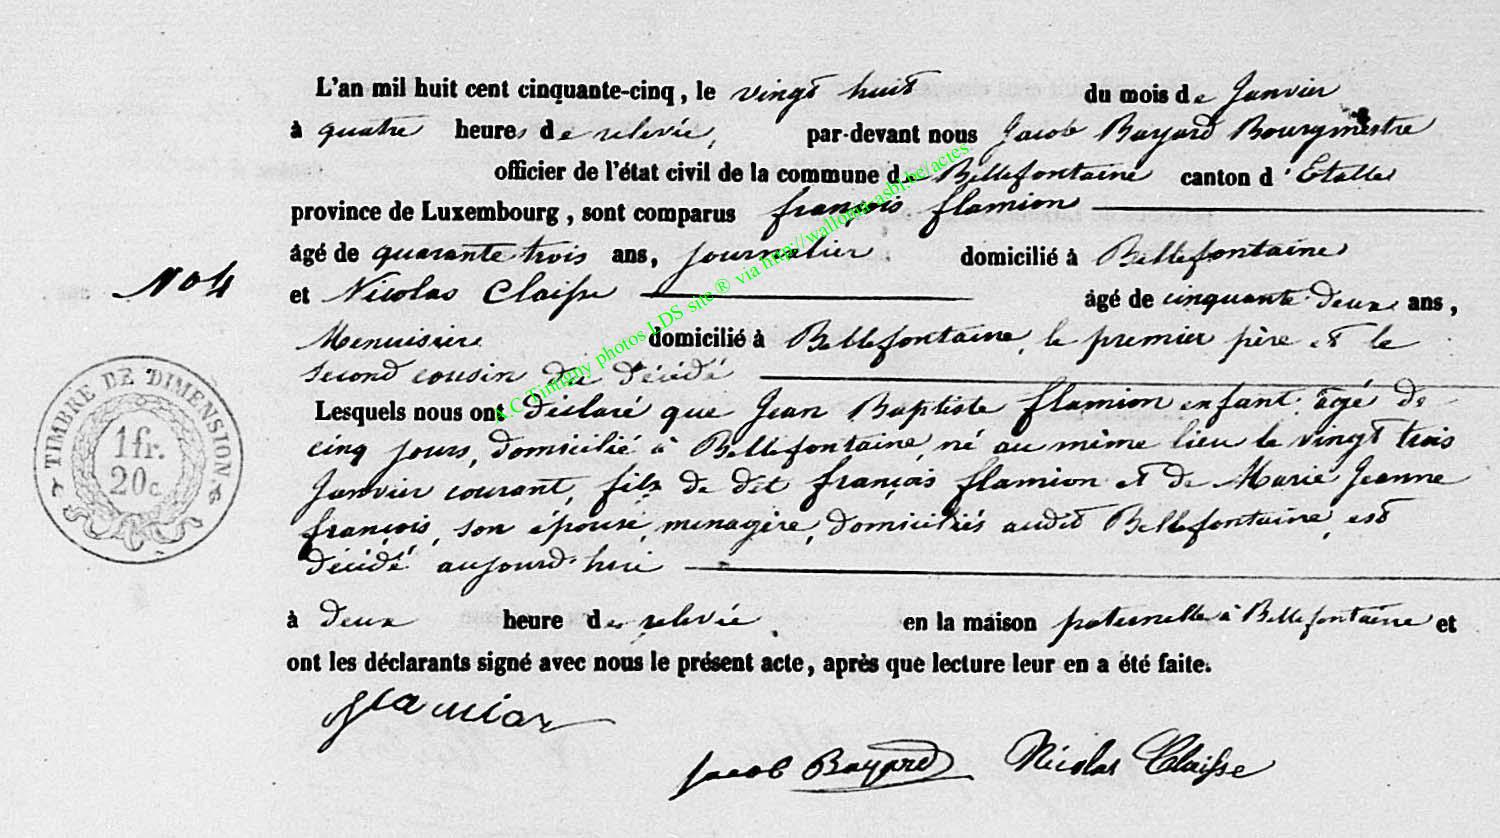 L'an mil huit cent cinquante-cinq, le vingt huit du mois de Janvier
à quatre heures de relevée, par-devant nous Jacob Bayard Bourgmestre
officier de l'état civil de la commune de Bellefontaine canton d'Etalle
province de Luxembourg, sont comparus françois flamion
âgé de quarante trois ans, journalier domicilié à Bellefontaine
No 4
et Nicolas Claisse âgé de cinquante deux ans,
Menuisier domicilié à Bellefontaine, le premier père et le
second cousin du décédé
Lesquels nous ont déclaré que Jean Baptiste flamion enfant âgé de
cinq jours, domicilié à Bellefontaine, né au même lieu le vingt trois
Janvier courant, fils de dit françois flamion et de Marie Jeanne
françois, son épouse, menagère, domiciliés audit Bellefontaine, est
décédé aujourd'hui
à deux heure de relevée en la maison paternelle à Bellefontaine et
ont les déclarants signé avec nous le présent acte, après que lecture leur en a été faite.
flamion
Jacob Bayard Nicolas Claisse
TIMBRE DE DIMENSION.
1 fr.
20 c
A.C. Tintigny photos LDS site ® via http://wallonica.asbl.be/actes.